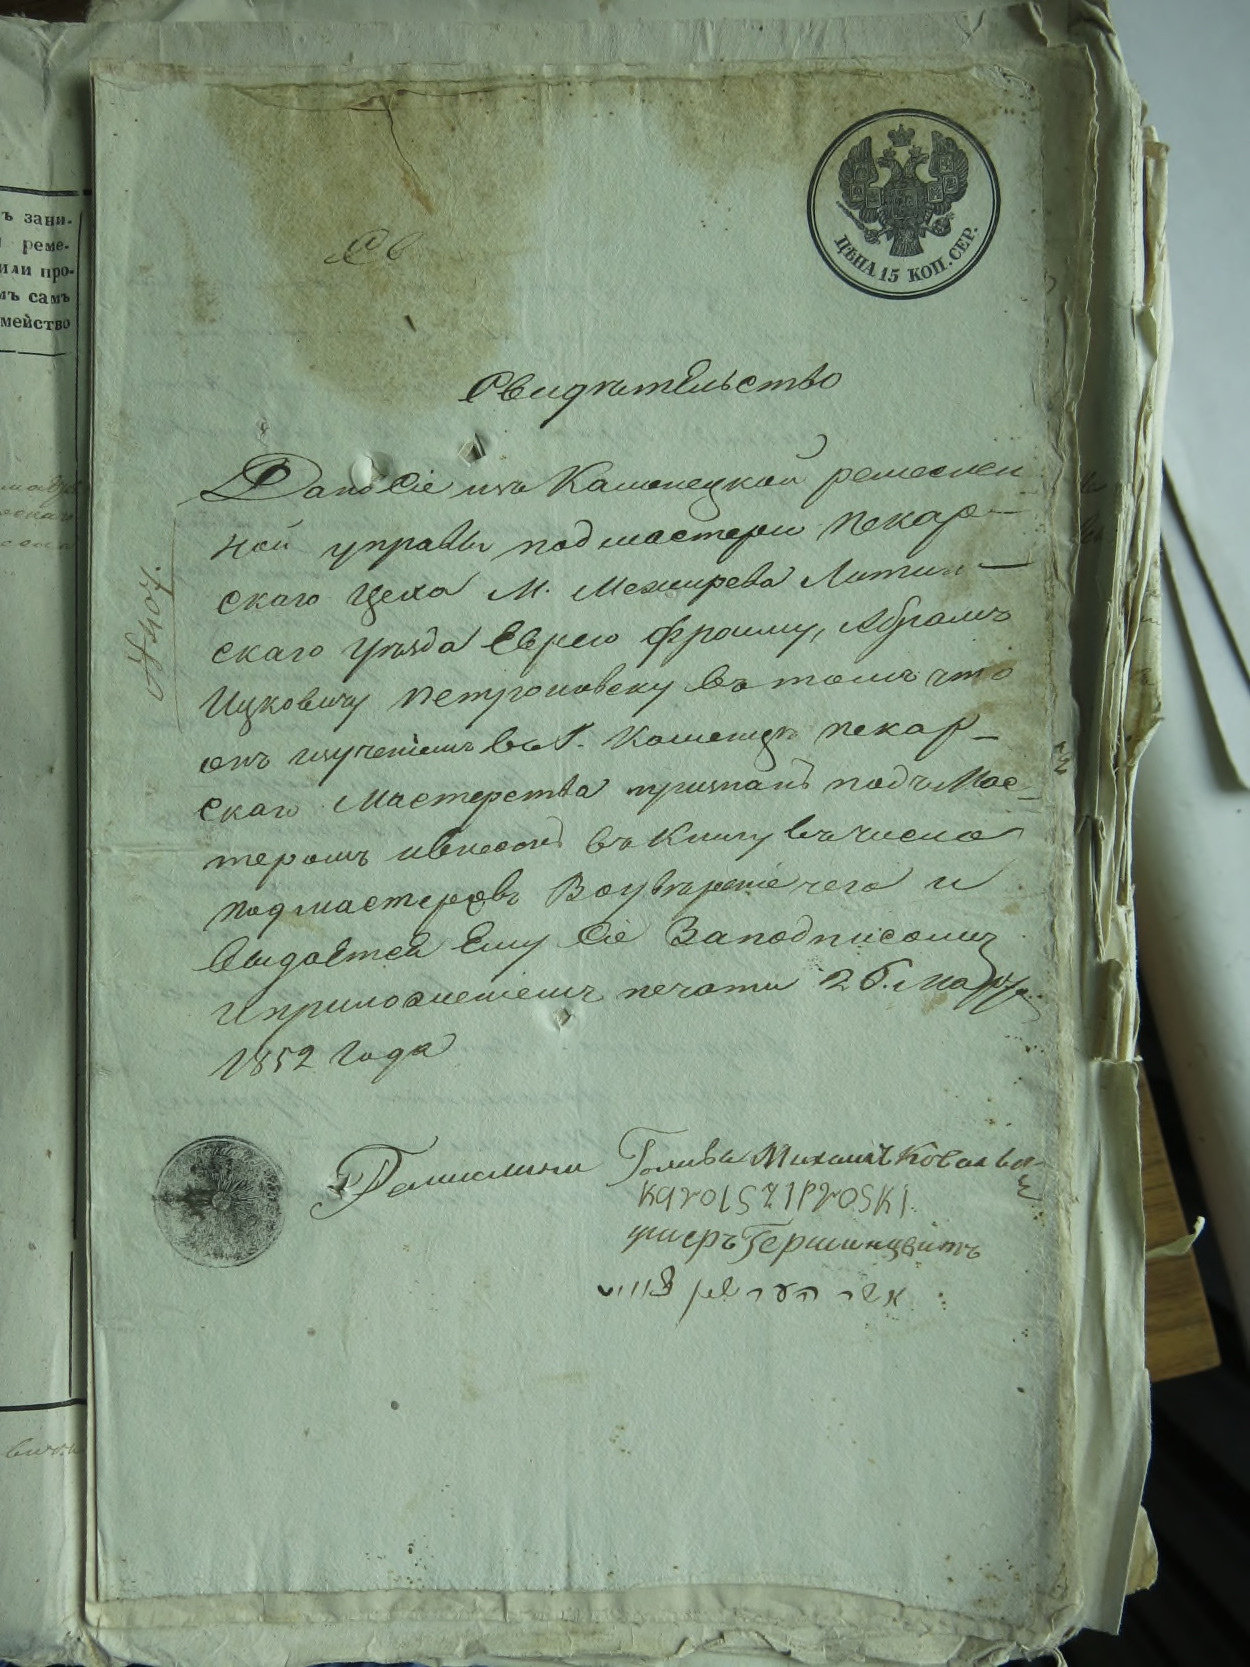 ъ зани-
реме-
или про-
мъ самъ
мейство
Св
ЦѢНА 15 КОП. СЕР.
Свидѣтельство
Дано Сіе изъ Каменецкой ремеслен
ной управы подмастери пекар-
скаго цеха М. Межирева Литин-
скаго уѣзда Еврею Фроиму, Абрамъ
Ицковичу Петрановску въ томъ что
онъ изученіемъ въ Г. Каменцѣ пекар-
скаго Мастерства признанъ подъ Мас-
теромъ и внесонъ въ Книгу въ число
подмастеровъ Воувѣреніе чего и
выдается Ему Сіе За подписомъ
и приложеніемъ печати 26. Марта
1852 Года
№ 407.
Голива Михаилъ
KAROL
ушеръ Гершинцвитъ